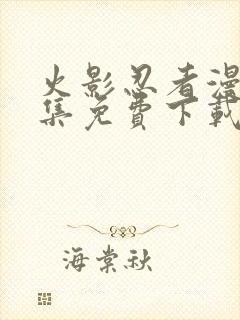 火影忍者漫
集免費下載
海棠秋